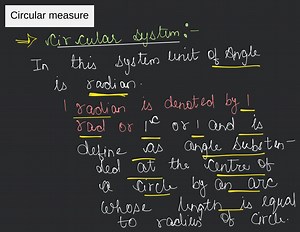 Circular measure
⇒ Circular system:-
In this system unit of Angle
is radian.
1 radian is denoted by 1
rad or 1ᶜ or 1 and is
define as angle substen-
ded at the centre of
a circle by an arc
whose length is equal
to radius of circle.